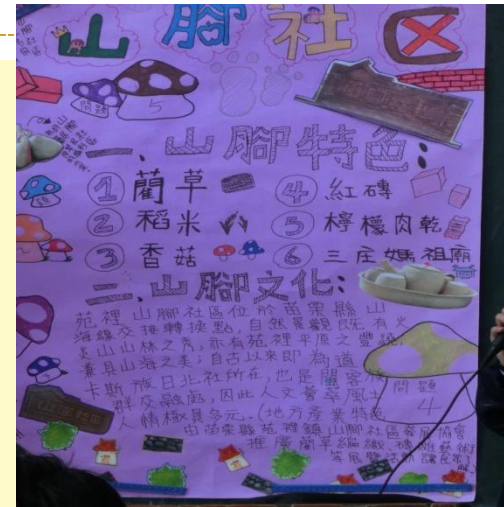 山腳社区
問題
5
一、山腳特色:
① 藺草
④ 紅磚
② 稻米
⑤ 檸檬肉乾
③ 香菇
⑥ 三庄媽祖廟
二、山腳文化:
苑裡山腳社區位於苗栗縣山
海線交接轉換點,自然景觀既有火
炎山山林之秀,亦有苑裡平原之豐饒,
兼具山海之美;自古以來即為道
卡斯族日北社所在,也是閩客族
群交融處,因此人文薈萃風土
人情極具多元。(地方產業特色
由苗栗縣苑裡鎮山腳社區發展協會
推廣藺草編織、磚雕藝術
等展覽活動讓民眾了
解)
問題
4